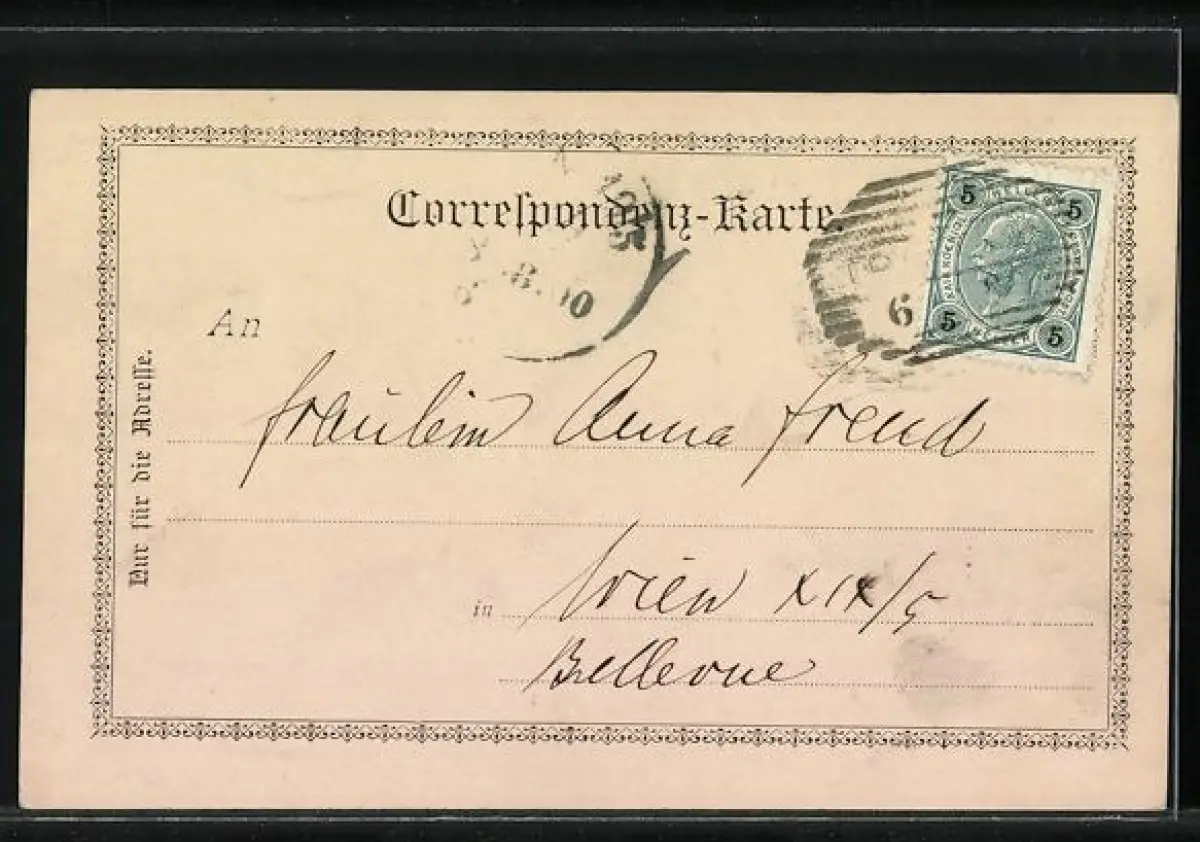 Correspondenz-Karte.
8.00
6
5 5
5 5
An
Fräulein Anna Freud
in Wien XIX/5
Bellevue
Nur für die Adresse.